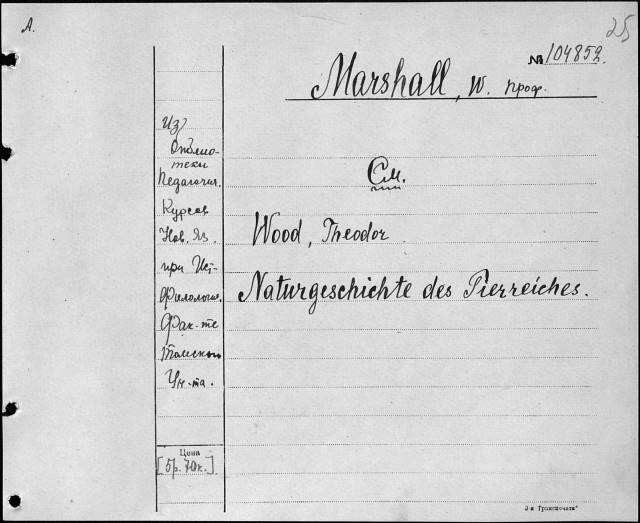 А.
25
№ 104852.
Marshall, W. проф.
Из
Библио-
теки
Педагогич.
Курсов
Нов. Яз.
при Ист-
Филологич.
Фак-те
Томского
Ун-та.
См.
Wood, Theodor
Naturgeschichte des Tierreiches.
Цена
[5р. 70к.]
3-я Транспечати"